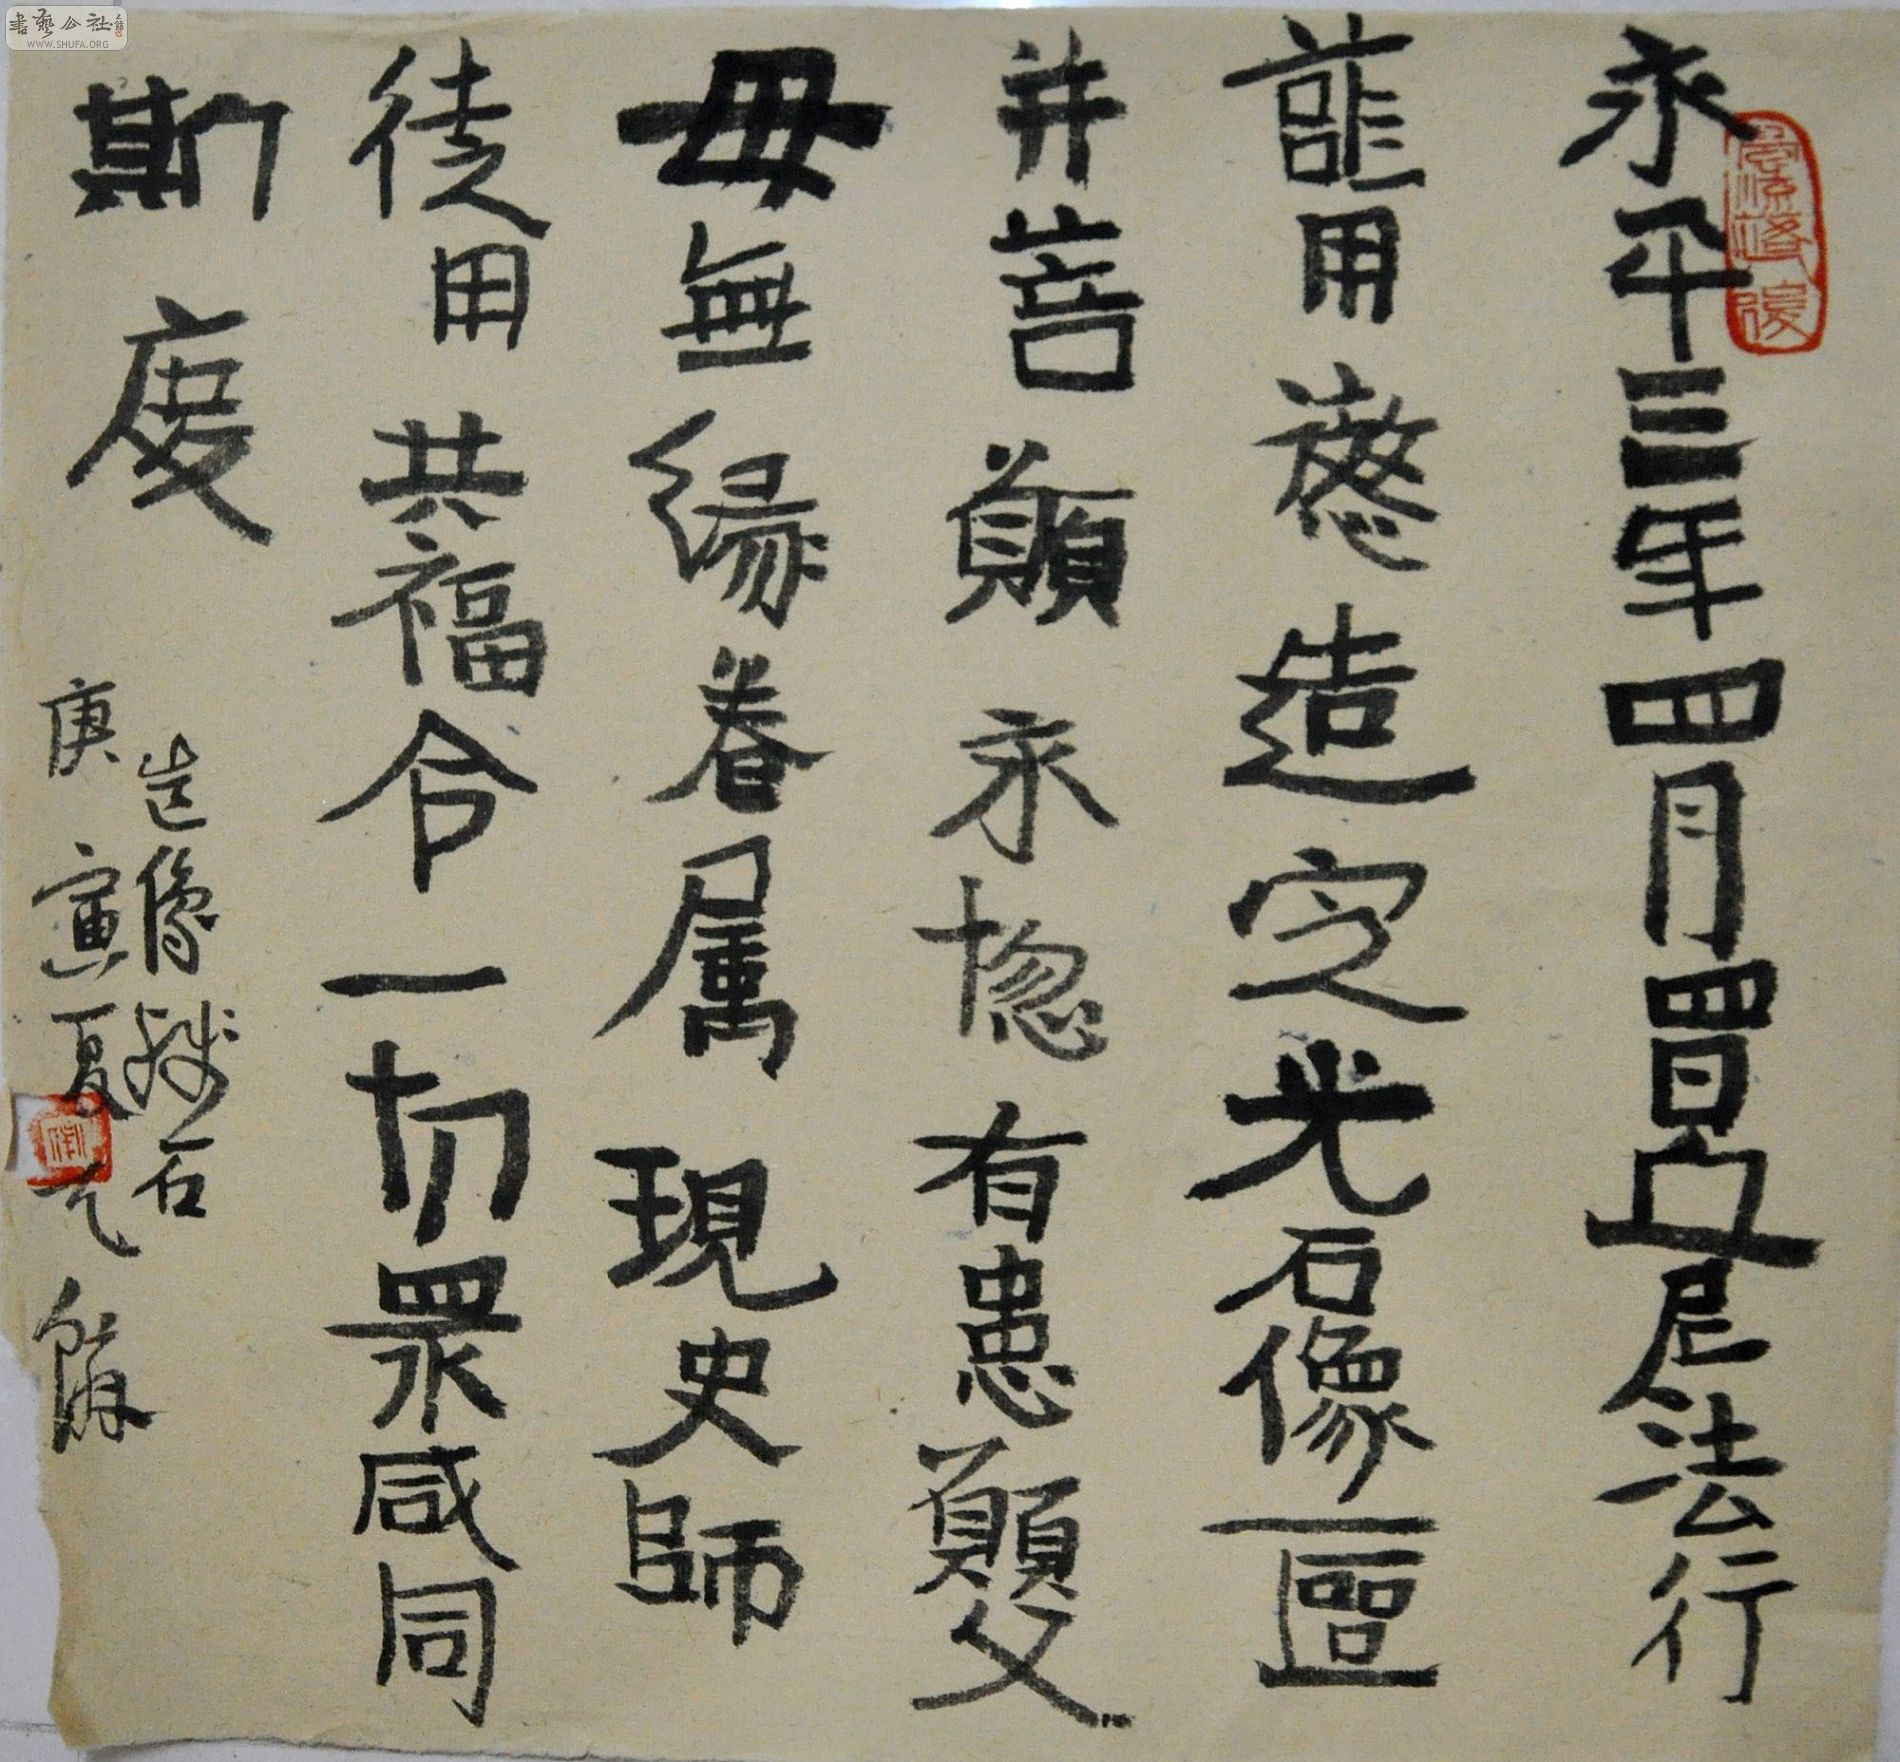 永平三年四月四日比丘尼法行
用造定光石像一區
并菩願永有患願父
母無緣眷属現史師
徒用共福令一切眾咸同
斯慶
造像殘石
庚寅夏
書藝公社
WWW.SHUFA.ORG